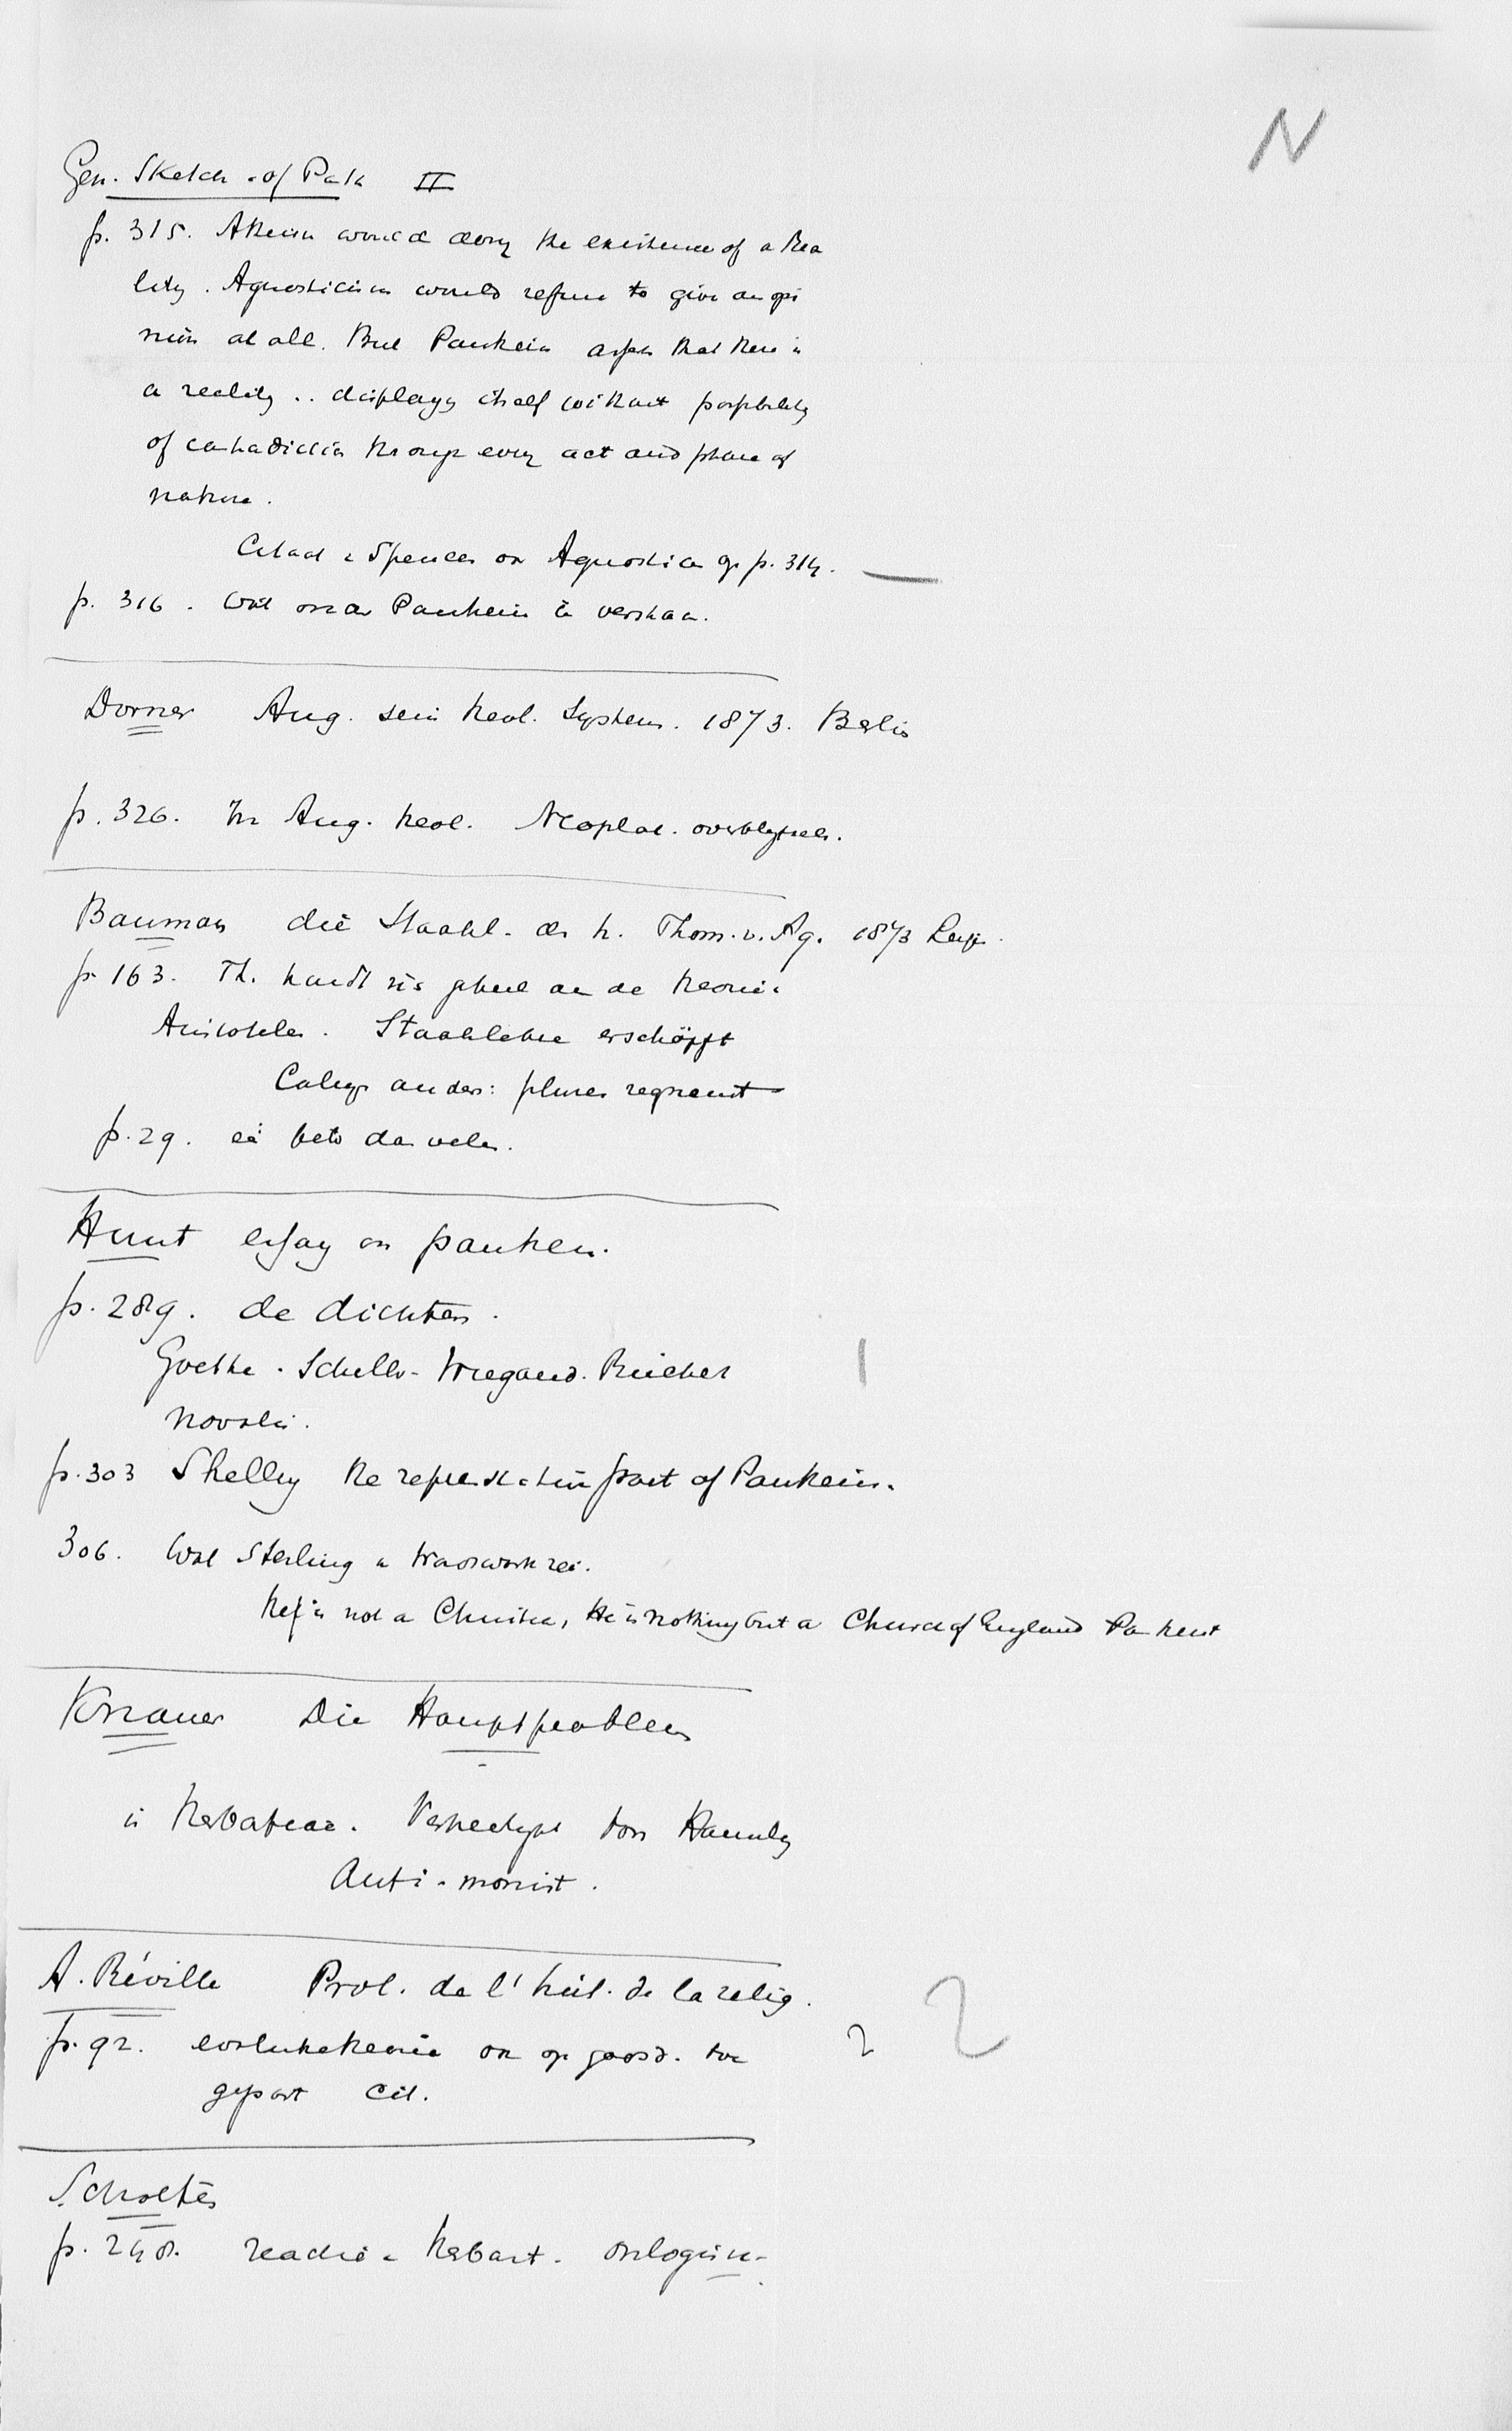 N
Gen. Sketch of Panth II
p. 315. Atheism would deny the existence of a Rea
lity. Agnosticism would refuse to give an opi
nion at all. But Pantheism asserts that there is
a reality .. displays itself without possibility
of contradiction through every act and phase of
nature.
Citaat v Spencer on Agnostics op p. 314.
p. 316. Wat onder Pantheism te verstaan.
Dorner Aug. sein theol. System. 1873. Berlin
p. 326. In Aug. theol. Neoplat. overblijfselen.
Bauman die Staatsl. des h. Thom. v. Aq. 1873 Leipz.
p. 163. Th. houdt zich geheel aan de theorie v
Aristoteles. Staatslehre erschöpft
Calvijn anders: plures regnant
p. 29.
Hunt essay on panthen.
p. 289. de dichters.
Goethe. Schiller. Wiegand. Rückert
Novalis.
p. 303 Shelley the representative poet of Pantheism.
306. Wat Sterling v Wordsworth zei.
He is not a Christian, He is nothing but a Church of England Pantheist
1
Knauer Die Hauptproblem
is Herbatiaan. Verheerlijkt
Anti-monist.
A. Réville Prol. de l'hist. de la relig.
p. 92. evolutietheorie ook op godsd. toe
gepast cit.
2 2
Scholten
p. 248. reactie v Herbart.